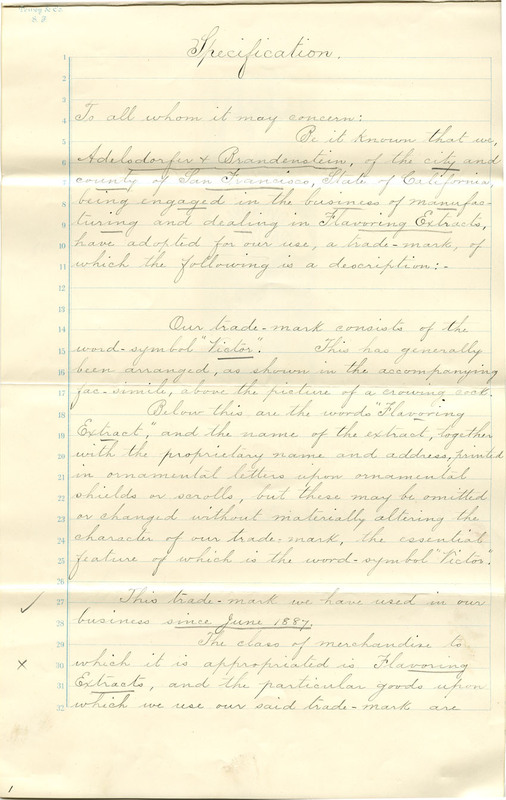 Specification.
1
2
3
4
To all whom it may concern:
5
Be it known that we,
6
Adelsdorfer & Brandenstein, of the city and
7
county of San Francisco, State of California,
8
being engaged in the business of manufac-
9
turing and dealing in Flavoring Extracts,
10
have adopted for our use, a trade-mark, of
11
which the following is a description:-
12
13
14
Our trade-mark consists of the
15
word-symbol "Victor". This has generally
16
been arranged, as shown in the accompanying
17
fac-simile, above the picture of a crowing cock.
18
Below this are the words "Flavoring
19
Extract," and the name of the extract, together
20
with the proprietary name and address, printed
21
in ornamental letters upon ornamental
22
shields or scrolls, but these may be omitted
23
or changed without materially altering the
24
character of our trade-mark, the essential
25
feature of which is the word-symbol "Victor".
26
27
This trade-mark we have used in our
28
business since June 1887.
29
The class of merchandise to
30
which it is appropriated is Flavoring
31
Extracts, and the particular goods upon
32
which we use our said trade-mark are
1